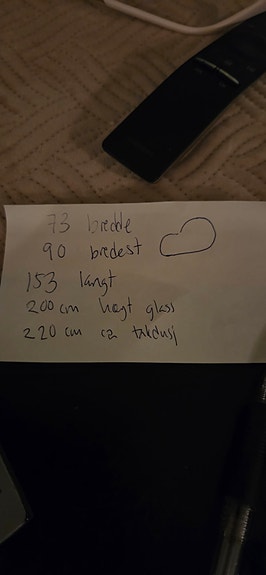 73 bredde
90 bredest
153 langt
200 cm høyt glass
220 cm ca takdusj